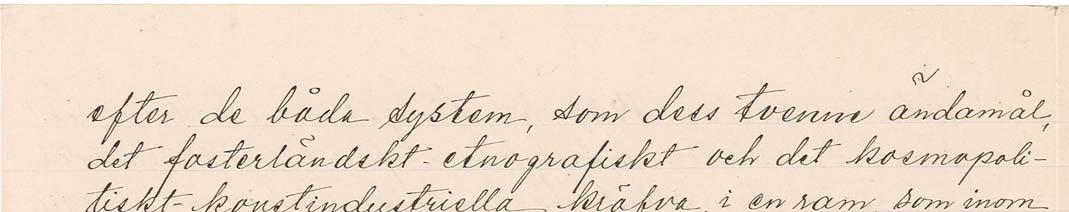 efter de båda system, som dess tvenne ändamål,
det fosterländskt-etnografiskt och det kosmopoli-
tiskt-konstindustriella kräfva, i en ram som inom